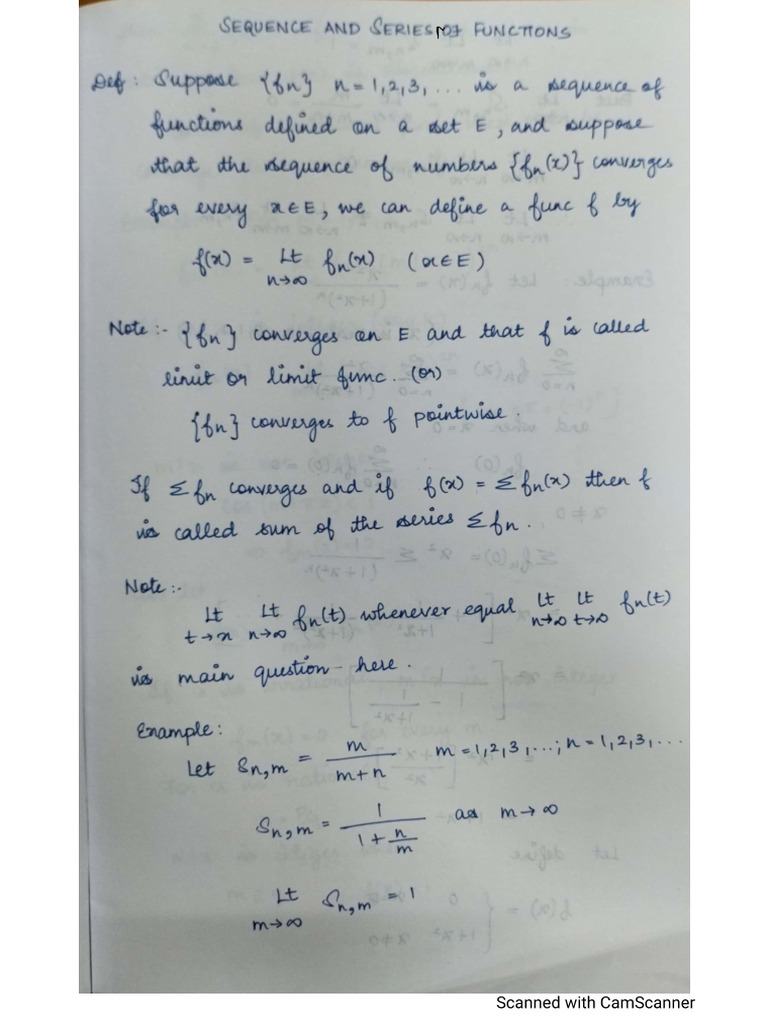 SEQUENCE AND SERIES OF FUNCTIONS
Def : Suppose {fn} n = 1,2,3, ... is a sequence of
functions defined on a set E, and suppose
that the sequence of numbers {fn(x)} converges
for every x∈E, we can define a func f by
f(x) = Lt n→∞ fn(x) (x∈E)
Note :- {fn} converges on E and that f is called
limit or limit func. (or)
{fn} converges to f pointwise.
If Σfn converges and if f(x) = Σfn(x) then f
is called sum of the series Σfn.
Note :-
Lt t→x Lt n→∞ fn(t) whenever equal Lt n→∞ Lt t→∞ fn(t)
is main question here.
Example:
Let Sn,m = m/(m+n) m = 1,2,3,...; n = 1,2,3,...
Sn,m = 1/(1+n/m) as m→∞
Lt m→∞ Sn,m = 1
Scanned with CamScanner